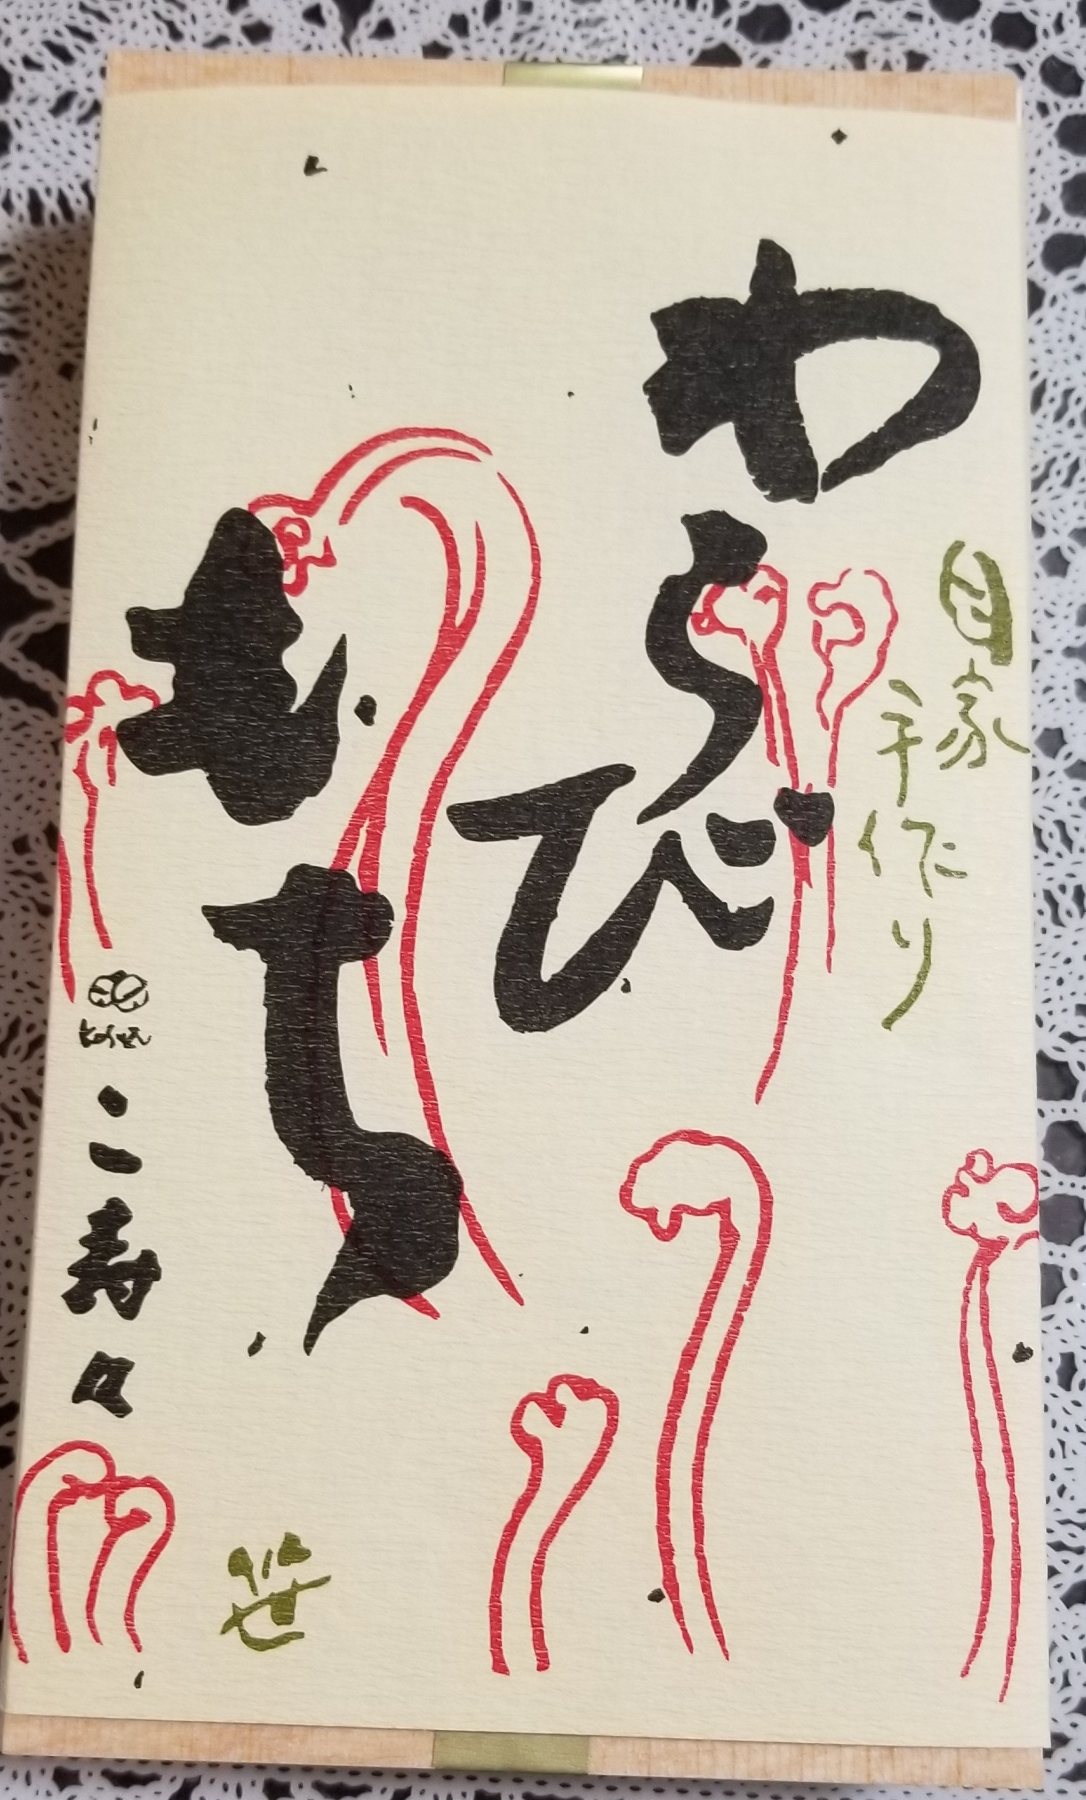 わらび
もち
自家
手作り
こ寿々
笹